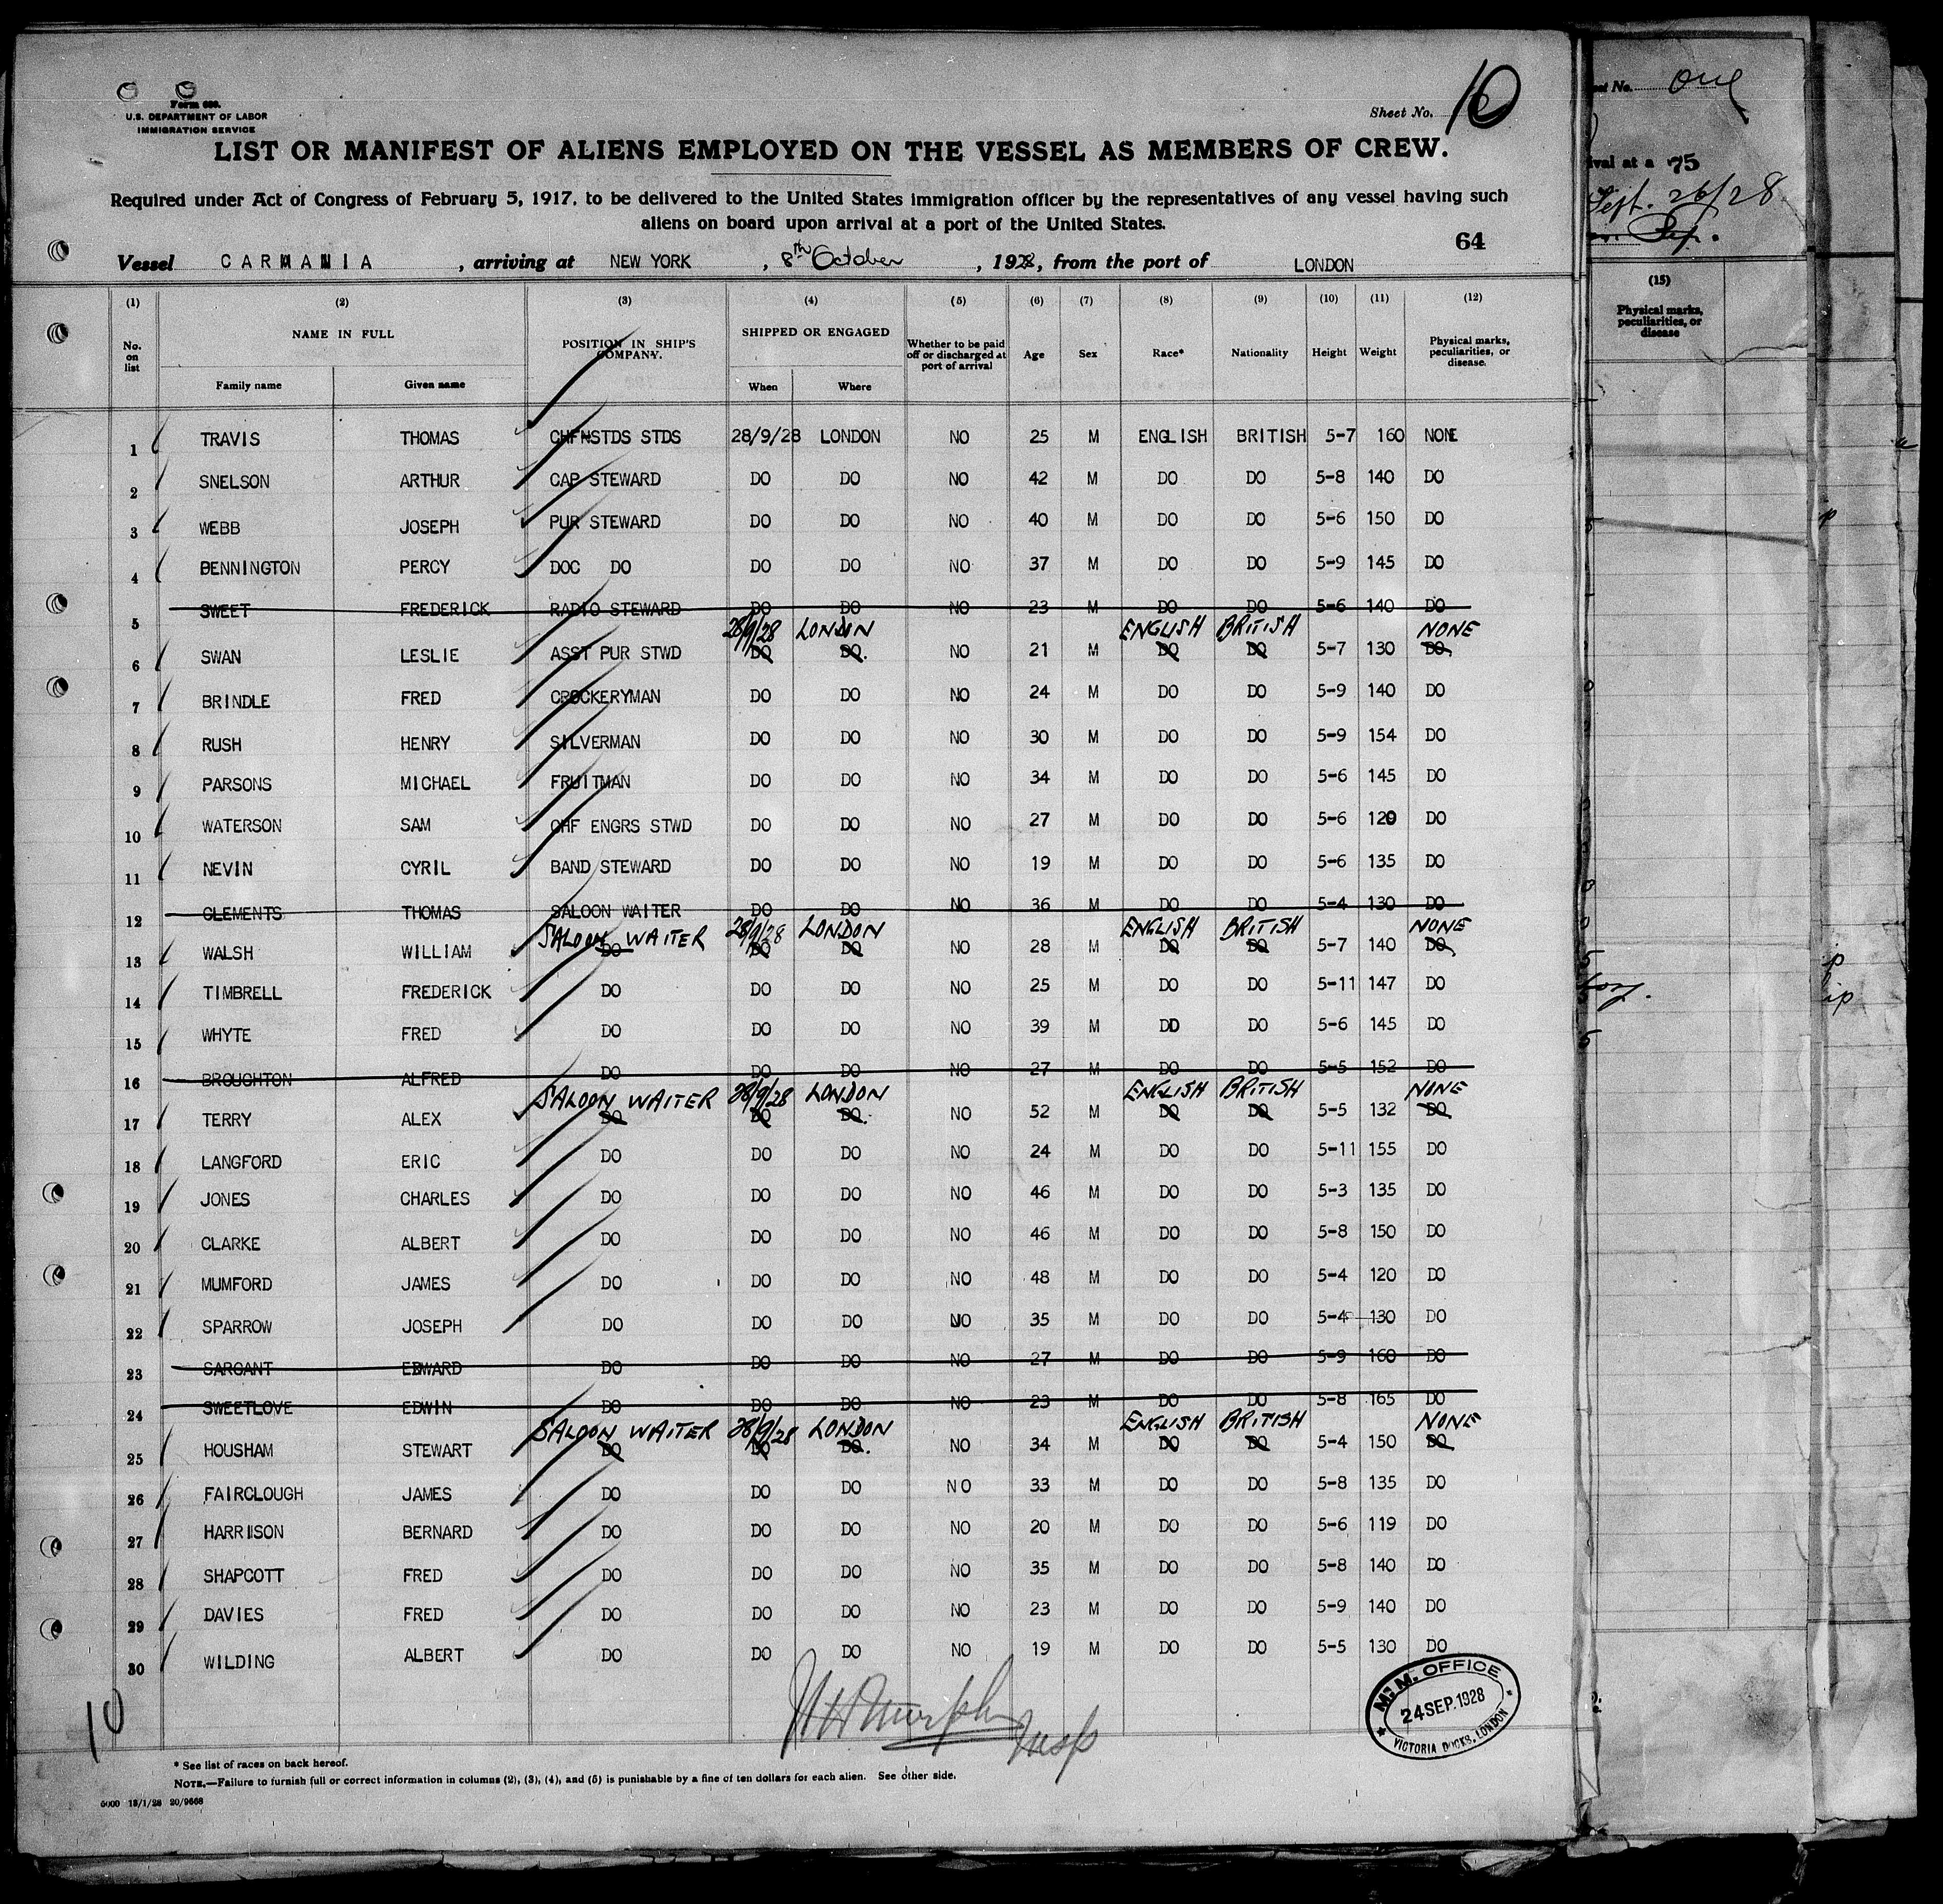 Form 680.
U.S. DEPARTMENT OF LABOR
IMMIGRATION SERVICE
Sheet No. 10
LIST OR MANIFEST OF ALIENS EMPLOYED ON THE VESSEL AS MEMBERS OF CREW.
Required under Act of Congress of February 5, 1917, to be delivered to the United States immigration officer by the representatives of any vessel having such
aliens on board upon arrival at a port of the United States.
64
Vessel CARMANIA, arriving at NEW YORK, 8th October, 1928, from the port of LONDON
(1) (2) (3) (4) (5) (6) (7) (8) (9) (10) (11) (12)
No. on list NAME IN FULL POSITION IN SHIP'S COMPANY. SHIPPED OR ENGAGED Whether to be paid off or discharged at port of arrival Age Sex Race* Nationality Height Weight Physical marks, peculiarities, or disease.
Family name Given name When Where
1 TRAVIS THOMAS CHFNSTDS STDS 28/9/28 LONDON NO 25 M ENGLISH BRITISH 5-7 160 NONE
2 SNELSON ARTHUR CAP STEWARD DO DO NO 42 M DO DO 5-8 140 DO
3 WEBB JOSEPH PUR STEWARD DO DO NO 40 M DO DO 5-6 150 DO
4 BENNINGTON PERCY DOC DO DO DO NO 37 M DO DO 5-9 145 DO
5 SWEET FREDERICK RADIO STEWARD DO DO NO 23 M DO DO 5-6 140 DO
28/9/28 LONDON ENGLISH BRITISH NONE
6 SWAN LESLIE ASST PUR STWD DO DO. NO 21 M DO DO 5-7 130 DO
7 BRINDLE FRED CROCKERYMAN DO DO NO 24 M DO DO 5-9 140 DO
8 RUSH HENRY SILVERMAN DO DO NO 30 M DO DO 5-9 154 DO
9 PARSONS MICHAEL FRUITMAN DO DO NO 34 M DO DO 5-6 145 DO
10 WATERSON SAM CHF ENGRS STWD DO DO NO 27 M DO DO 5-6 120 DO
11 NEVIN CYRIL BAND STEWARD DO DO NO 19 M DO DO 5-6 135 DO
12 CLEMENTS THOMAS SALOON WAITER DO DO NO 36 M DO DO 5-4 130 DO
SALOON WAITER 28/9/28 LONDON ENGLISH BRITISH NONE
13 WALSH WILLIAM DO DO DO NO 28 M DO DO 5-7 140 DO
14 TIMBRELL FREDERICK DO DO DO NO 25 M DO DO 5-11 147 DO
15 WHYTE FRED DO DO DO NO 39 M DO DO 5-6 145 DO
16 BROUGHTON ALFRED DO DO DO NO 27 M DO DO 5-5 152 DO
SALOON WAITER 28/9/28 LONDON ENGLISH BRITISH NONE
17 TERRY ALEX DO DO DO. NO 52 M DO DO 5-5 132 DO
18 LANGFORD ERIC DO DO DO NO 24 M DO DO 5-11 155 DO
19 JONES CHARLES DO DO DO NO 46 M DO DO 5-3 135 DO
20 CLARKE ALBERT DO DO DO NO 46 M DO DO 5-8 150 DO
21 MUMFORD JAMES DO DO DO NO 48 M DO DO 5-4 120 DO
22 SPARROW JOSEPH DO DO DO NO 35 M DO DO 5-4 130 DO
23 SARGANT EDWARD DO DO DO NO 27 M DO DO 5-9 160 DO
24 SWEETLOVE EDWIN DO DO DO NO 23 M DO DO 5-8 165 DO
SALOON WAITER 28/9/28 LONDON ENGLISH BRITISH NONE
25 HOUSHAM STEWART DO DO DO. NO 34 M DO DO 5-4 150 DO
26 FAIRCLOUGH JAMES DO DO DO NO 33 M DO DO 5-8 135 DO
27 HARRISON BERNARD DO DO DO NO 20 M DO DO 5-6 119 DO
28 SHAPCOTT FRED DO DO DO NO 35 M DO DO 5-8 140 DO
29 DAVIES FRED DO DO DO NO 23 M DO DO 5-9 140 DO
30 WILDING ALBERT DO DO DO NO 19 M DO DO 5-5 130 DO
10
Murphy Insp
M. M. OFFICE
24 SEP. 1928
VICTORIA DOCKS, LONDON
* See list of races on back hereof.
NOTE.—Failure to furnish full or correct information in columns (2), (3), (4), and (5) is punishable by a fine of ten dollars for each alien. See other side.
5000 13/1/28 20/9668
No. one
at a 75
Sept. 26/28
(15)
Physical marks, peculiarities, or disease